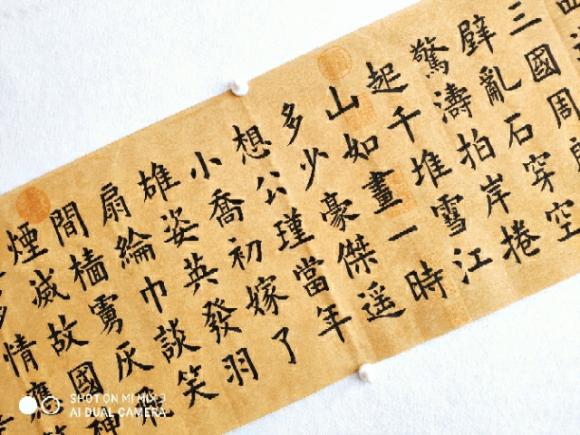 三國周郎
壁亂石穿空
驚濤拍岸捲
起千堆雪江
山如畫一時
多少豪傑遥
想公瑾當年
小喬初嫁了
雄姿英發羽
扇綸巾談笑
間檣虜灰飛
煙滅故國神
多情應笑
SHOT ON MI MIX 3
AI DUAL CAMERA